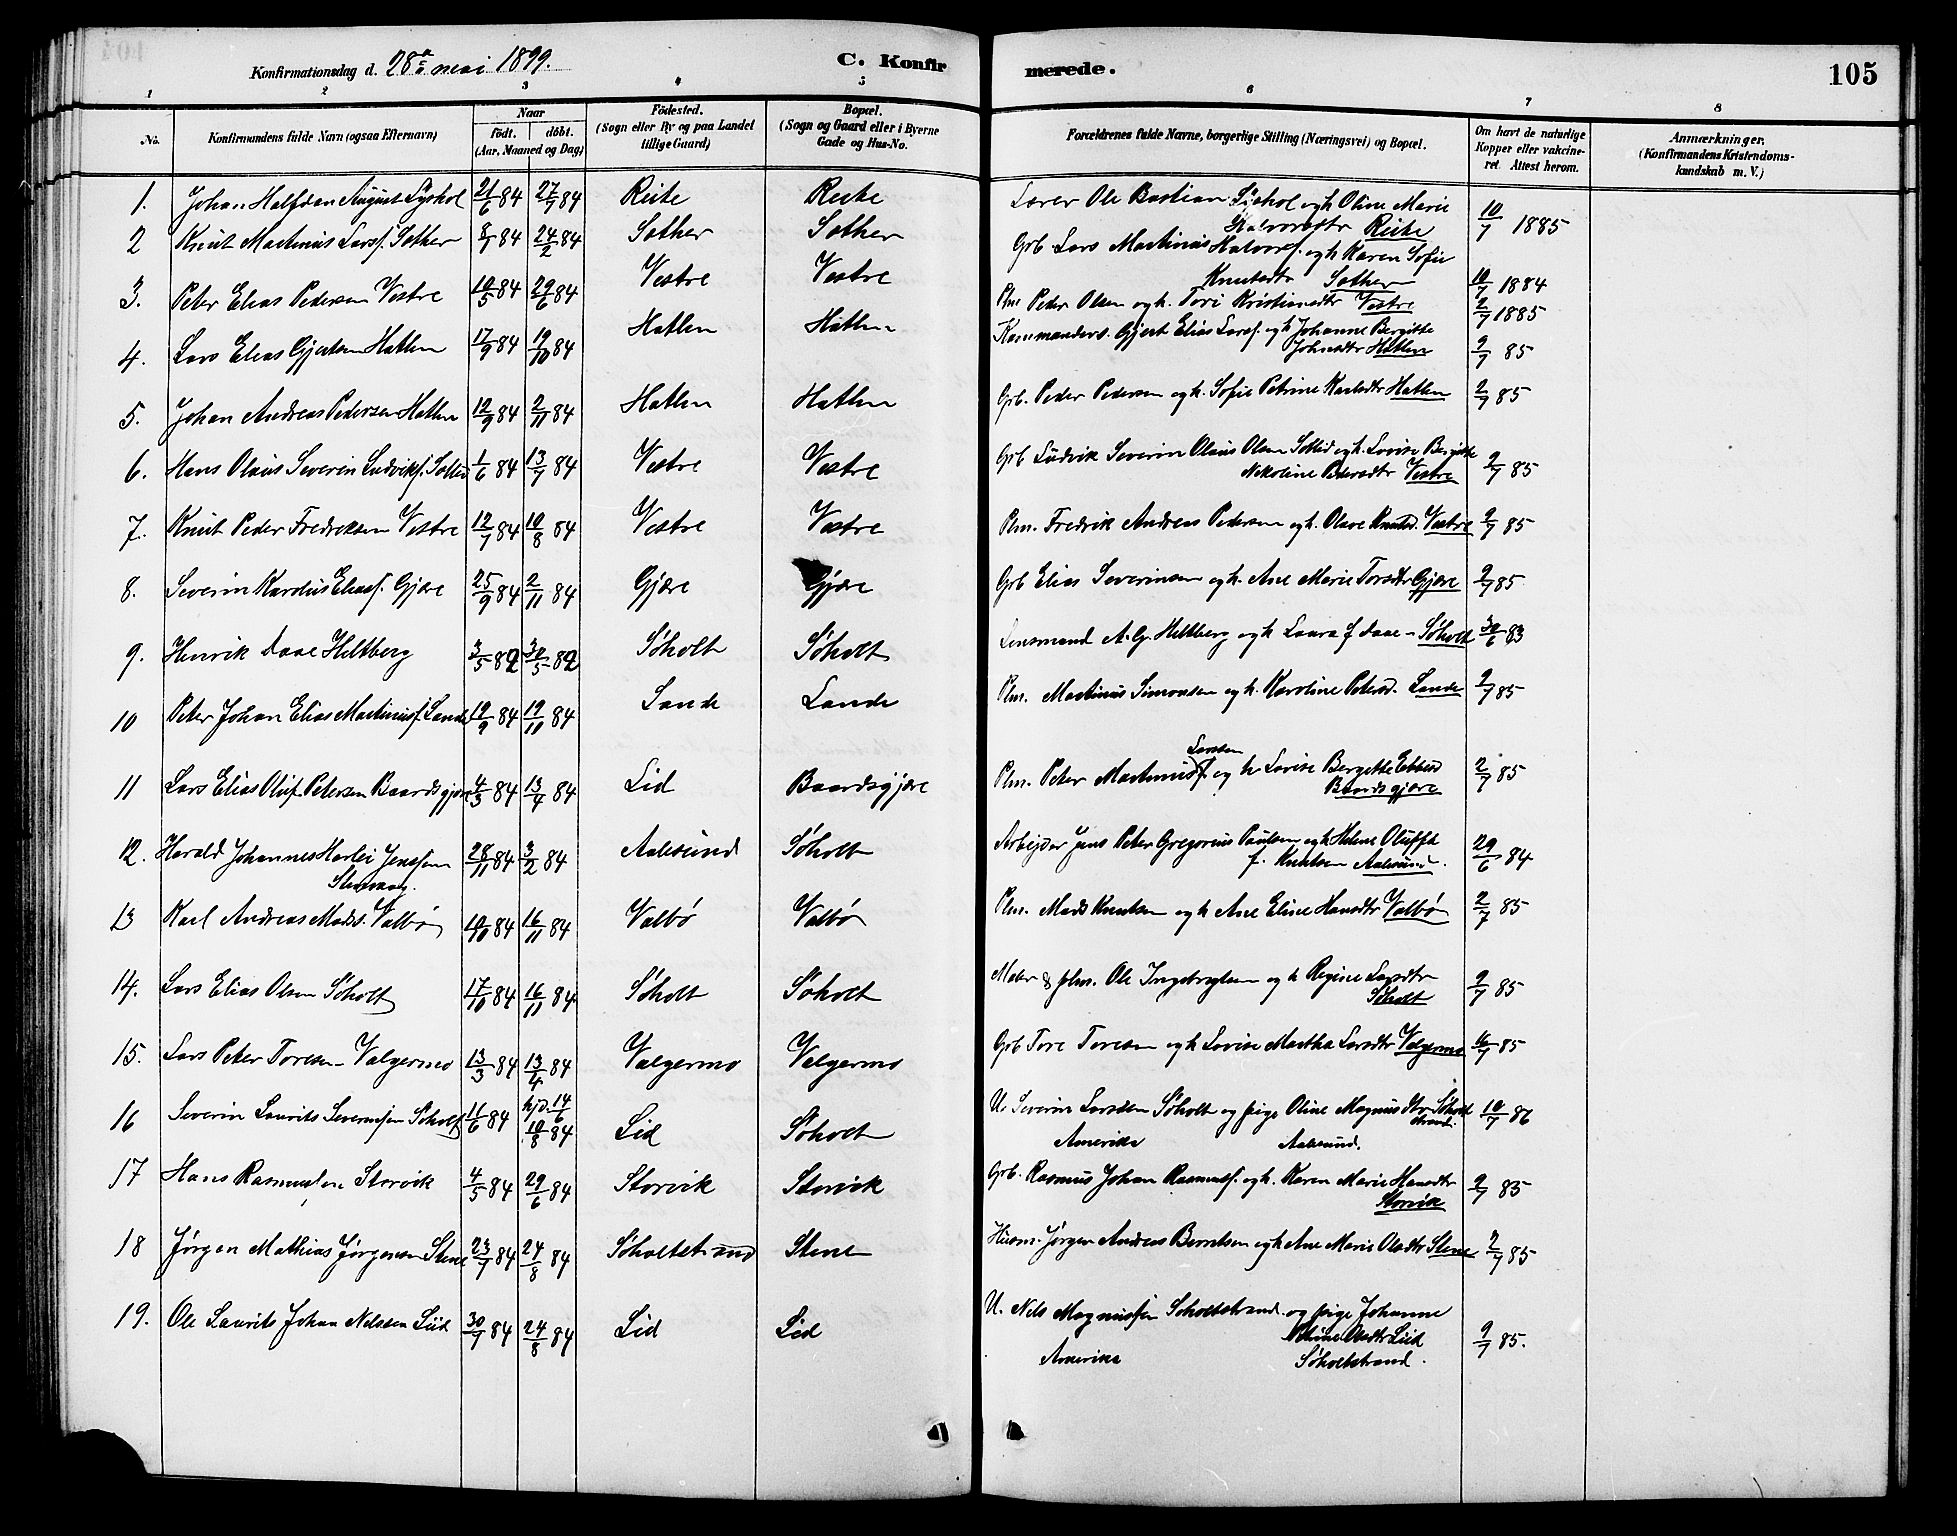 Konfirmationsdag d. 28de mai 1899. C. Konfirmerede. 105
1 2 3 4 5 6 7 8
No. Konfirmandens fulde Navn (ogsaa Efternavn) Naar født. døbt. (Aar, Maaned og Dag) Fødested. (Sogn eller By og paa Landet tillige Gaard) Bopæl. (Sogn og Gaard eller i Byerne Gade og Hus-No. Forældrenes fulde Navne, borgerlige Stilling (Næringsvei) og Bopæl. Om havt de naturlige Kopper eller vakcineret. Attest herom. Anmærkninger. (Konfirmandens Kristendomskundskab m. V.)
1. Johan Halfdan August Lyshol 21/6 84 27/7 84 Reite Reite Lærer Ole Bastian Lyshol og h Oline Marie Halvorsdtr Reite 10/7 1885
2 Knut Martinius Larsf. Sother 8/1 84 24/2 84 Sother Sother Grb Lars Martinius Halvorsf. og h Karen Sofie Knutsdtr Sother 10/7 1884
3. Peter Elias Pedersen Vestre 10/5 84 29/6 84 Vestre Vestre Plm Peter Olsen og h. Tori Kristiansdtr Vestre 2/7 1885
4. Lars Elias Gjertsen Hatlen 17/9 84 19/10 84 Hatlen Hatlen Kammanders. Gjert Elias Larsf. og h Johanne Bergitte Johnsdtr Hatlen 9/7 85
5. Johan Andreas Pedersen Hatlen 12/9 84 2/11 84 Hatlen Hatlen Grb. Peder Pedersen og h. Sofie Petrine Karlsdtr Hatlen 2/7 85
6. Hans Olaus Severin Ludviksf. 1/6 84 13/7 84 Vestre Vestre Grb Ludvik Severin Olaus Olsen og h. Lovise Bergitte Nikoline Petersdtr Vestre 9/7 85
7. Knut Peder Fredriksen Vestre 12/7 84 10/8 84 Vestre Vestre Plm. Fredrik Andreas Pedersen og h. Olave Knutsd. Vestre 9/7 85
8. Severin Kardius Eliasf. Gjære 25/9 84 2/11 84 Gjære Gjære Grb Elias Severinsen og h. Ane Marie Torsdtr Gjære 9/7 85
9. Henrik Daae Heltberg 3/5 82 30/5 82 Søholt Søholt Lensmand A. G. Heltberg og h Laura f Daae – Søholt 30/6 83
10 Peter Johan Elias Martiniusf. Lande 19/9 84 19/11 84 Lande Lande Plm. Martinius Simonsen og h. Karoline Petersd. Lande 9/7 85
11 Lars Elias Oluf Petersen Baardsgjære 4/3 84 13/4 84 Lid Baardsgjære Plm. Peter Martinius Larsen og h Lovise Bergitte Ebbesd Baardsgjære 2/7 85
12. Harald Johannes Jenssen 28/11 84 3/2 84 Aalesund Søholt Arbejder Jens Peter Gregorius Paulsen og h Helene Oluffa f. Knutsen Aalesund. 29/6 84
13 Karl Andreas Mads. Valbø 10/10 84 16/11 84 Valbø Valbø Plm. Mads Knutsen og h Ane Eline Hansdtr Valbø 2/7 85
14. Lars Elias Olsen Søholt 17/10 84 16/11 84 Søholt Søholt Maler & plm. Ole Ingebrigtsen og h Regine Larsdtr Søholt 9/7 85
15. Lars Peter Toresen Valgermo 13/3 84 13/4 84 Valgermo Valgermo Grb Tore Toresen og h Lovise Martha Larsdtr Valgermo 10/7 85
16 Severin Laurits Severinsen Søholt 11/6 84 hjd. 14/6 10/8 84 Lid Søholt U. Severin Larssen Søholt og pige Oline Magnusdtr Søholtstrand. Amerika Aalesund. 10/7 86
17 Hans Rasmussen Storvik 4/5 84 29/6 84 Storvik Storvik Grb. Rasmus Johan Rasmusf. og h. Karen Marie Hansdtr Storvik 9/7 85
18 Jørgen Mathias Jørgensen Stene 23/7 84 24/8 84 Søholtstrand Stene Husm. Jørgen Andreas Berntsen og h Ane Marie Olsdtr Stene 2/7 85
19. Ole Laurits Johan Nelssen Liid 30/7 84 24/8 84 Lid Lid U. Nels Magnussen Søholtstrand. og pige Johanne Olsdtr Liid Amerika Søholtstrand. 9/7 85.